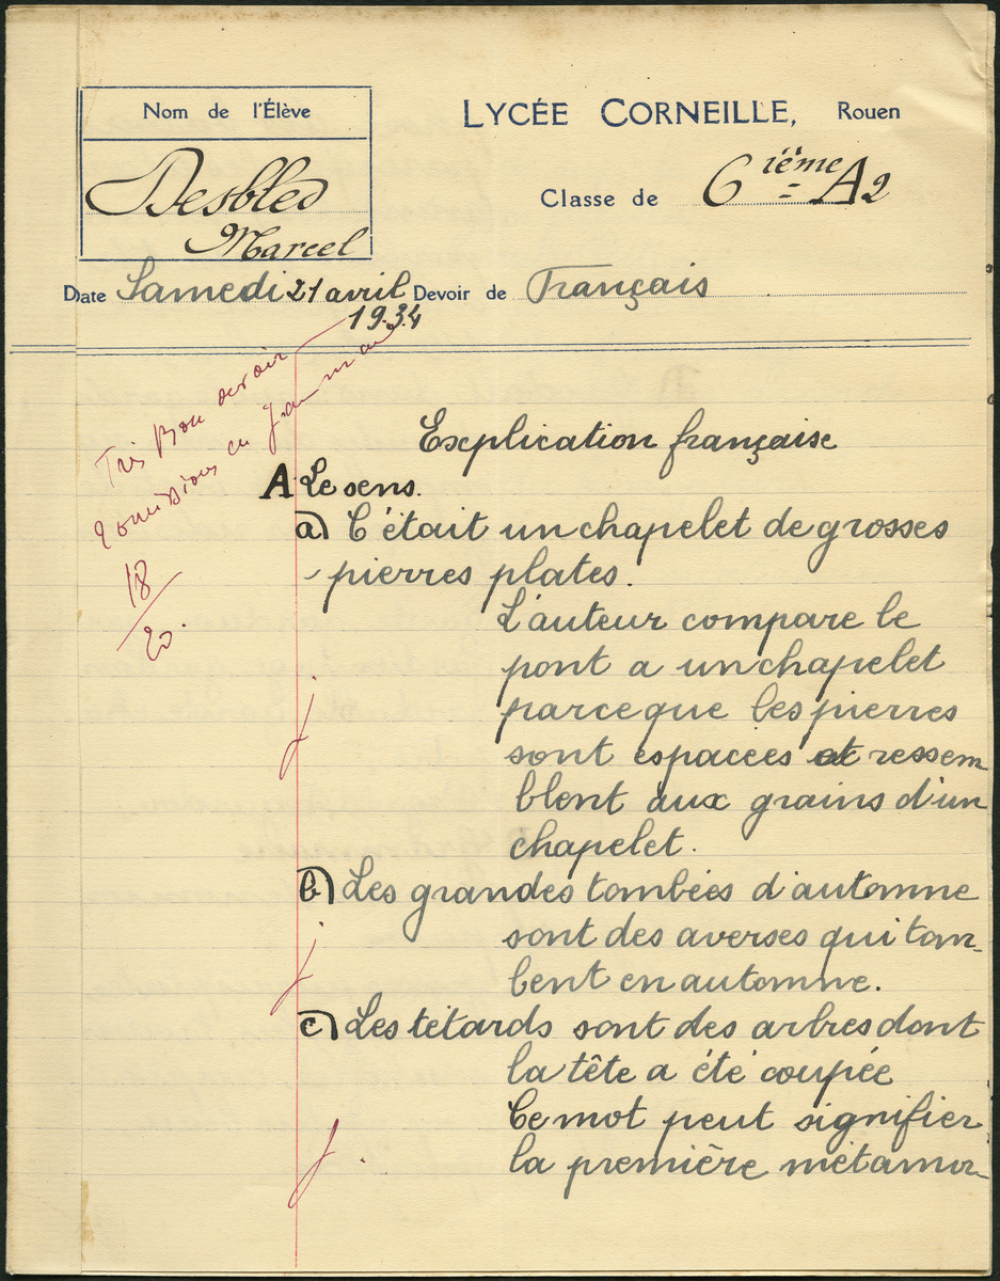 Nom de l'Élève
Desbled
Marcel
LYCÉE CORNEILLE, Rouen
Classe de 6 ième A2
Date Samedi 21 avril Devoir de Français
1934
Très Bon devoir
2 omissions en grammaire
18
20.
Explication française
A Le sens.
a) C'était un chapelet de grosses
pierres plates.
L'auteur compare le
pont a un chapelet
parceque les pierres
sont espacées et ressem
blent aux grains d'un
chapelet.
b) Les grandes tombées d'automne
sont des averses qui tom-
bent en automne.
c) Les tétards sont des arbres dont
la tête a été coupée
Ce mot peut signifier
la première métamor-